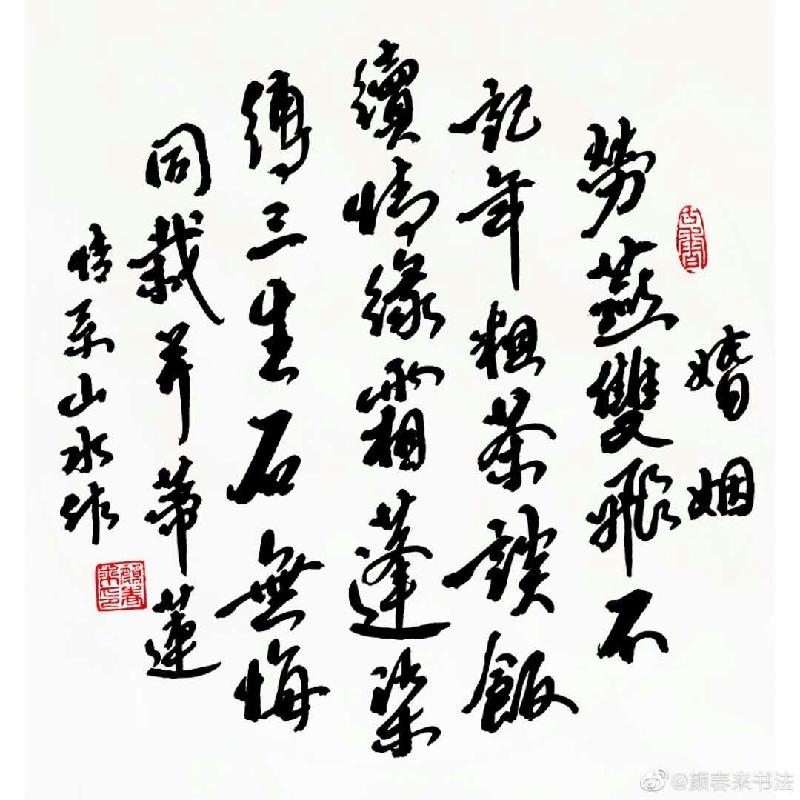 婚姻
勞燕雙飛不
記年粗茶談飯
續情緣霜蓬染
縛三生石無悔
同栽并蒂蓮
情系山水作
@顏春来书法